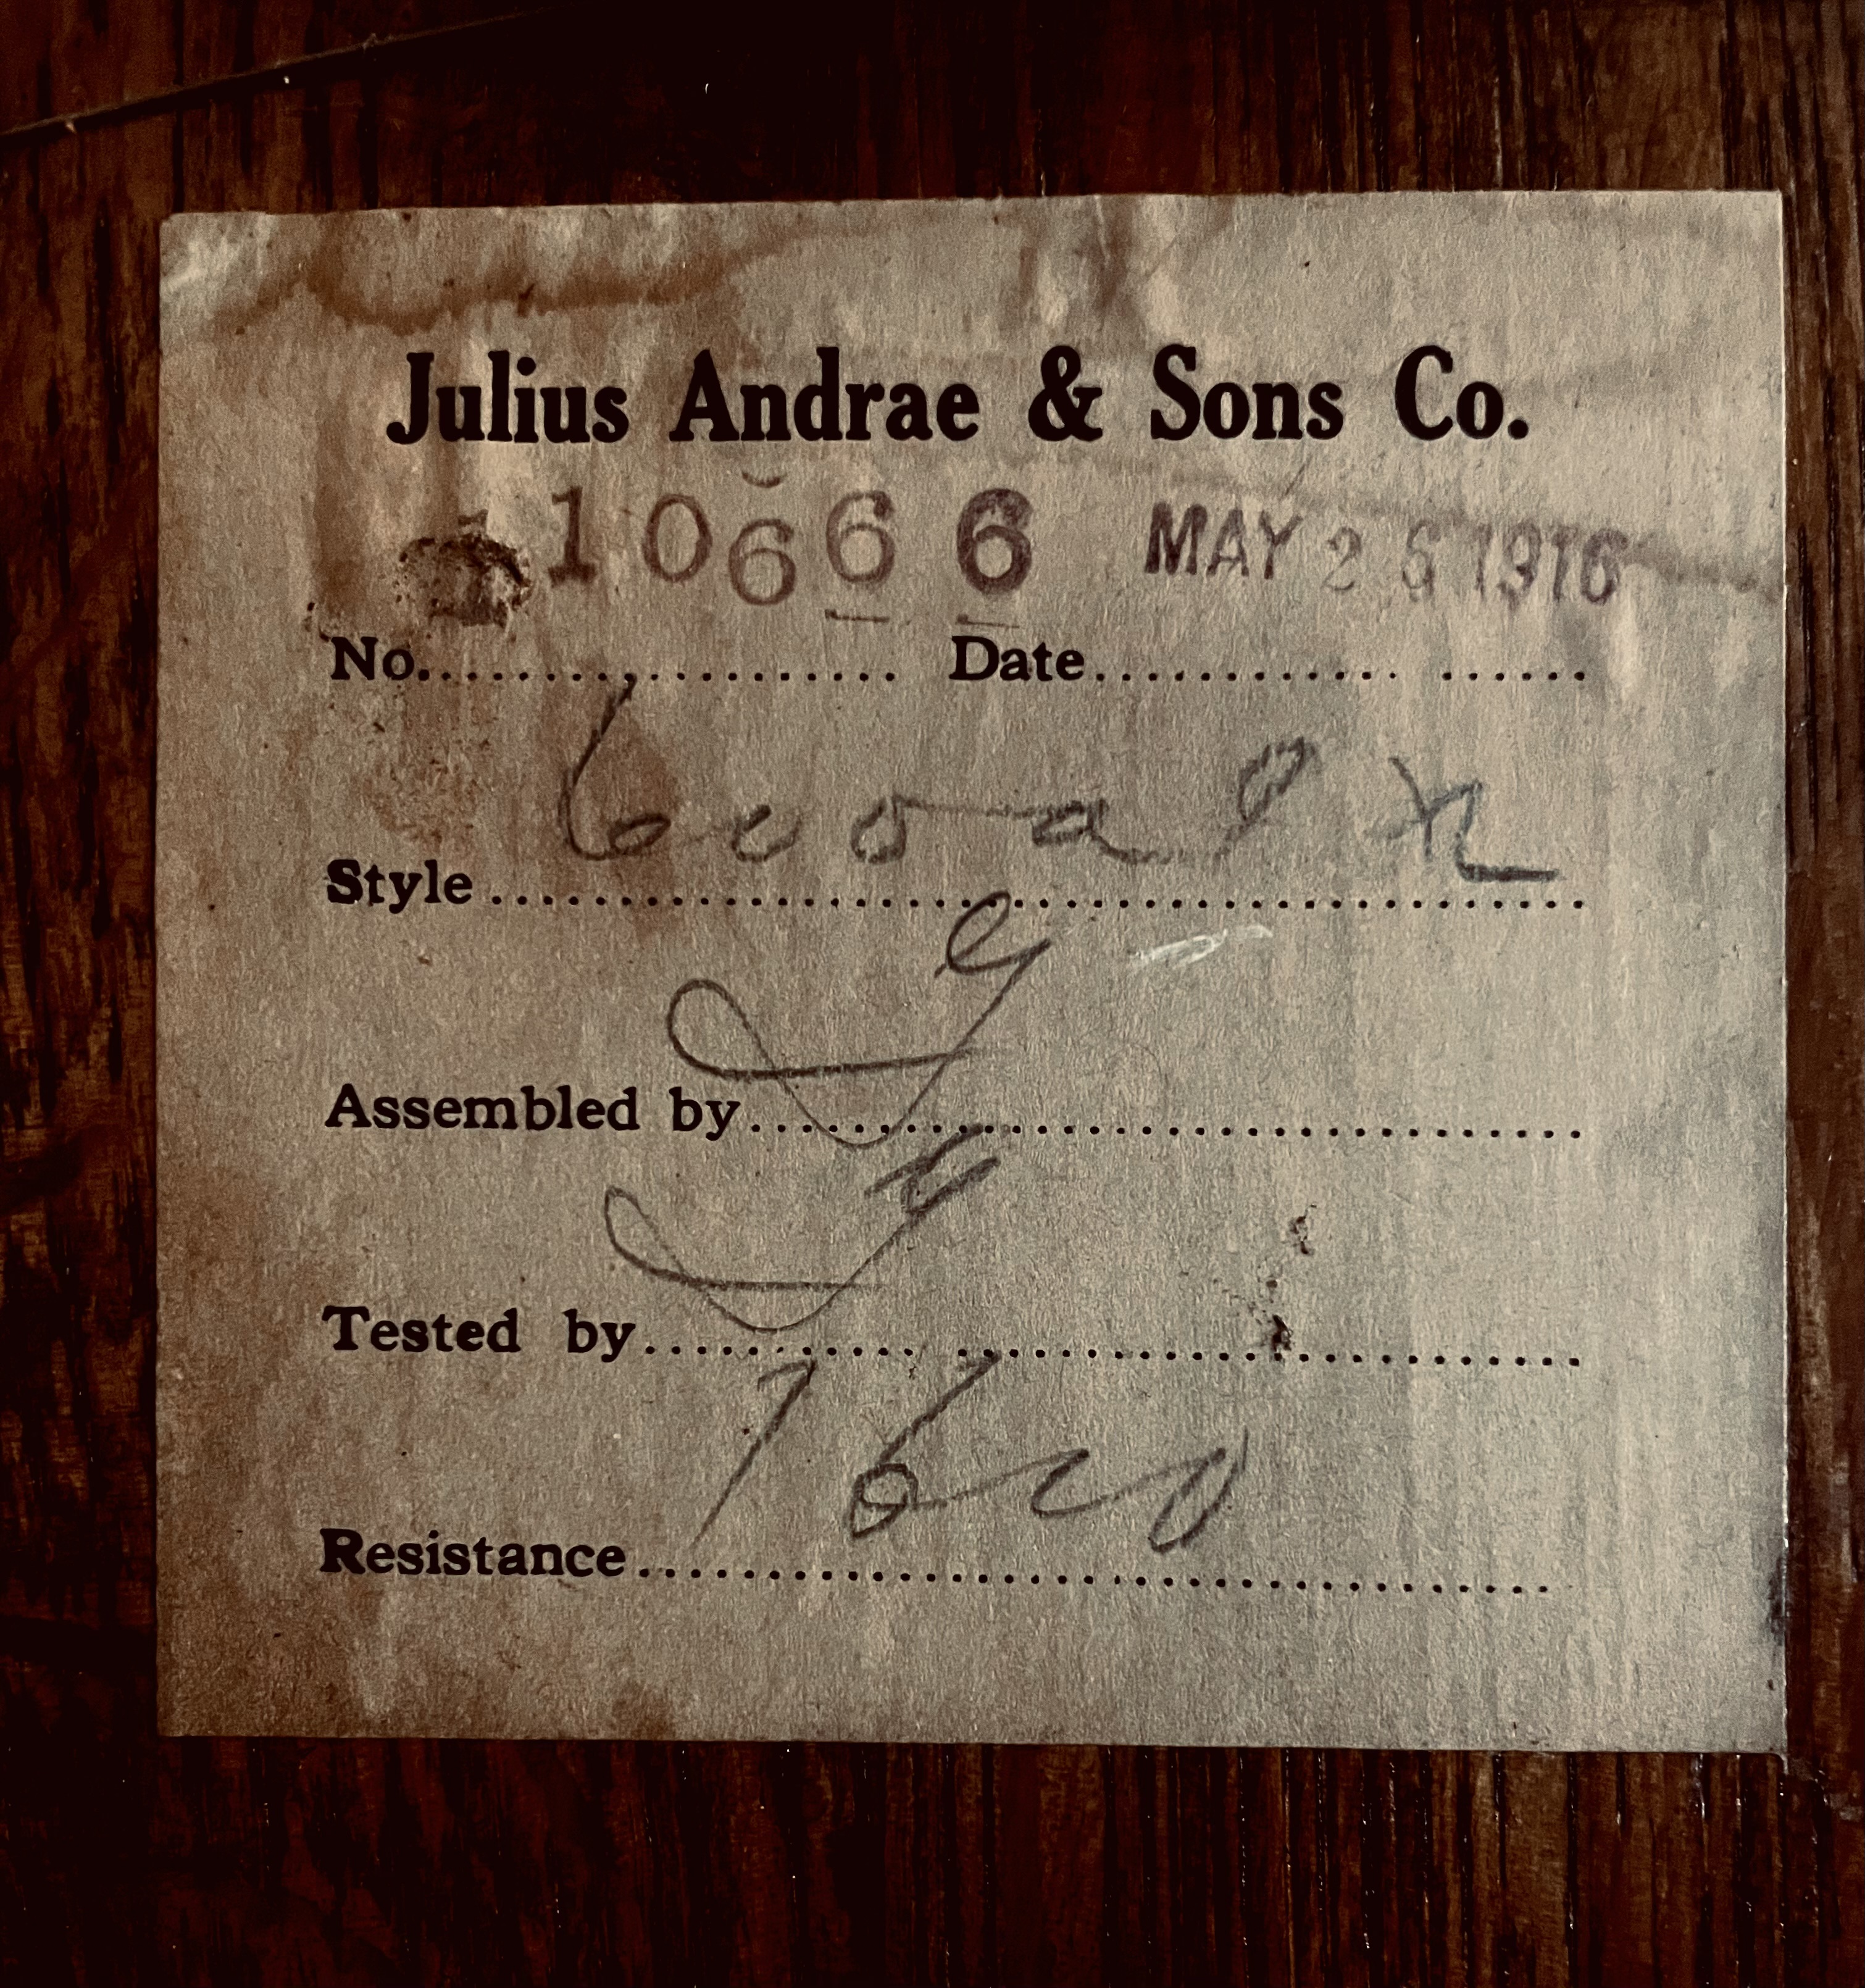 Julius Andrae & Sons Co.
10666 MAY 26 1916
No. Date
Style
Assembled by
Tested by
Resistance 1600